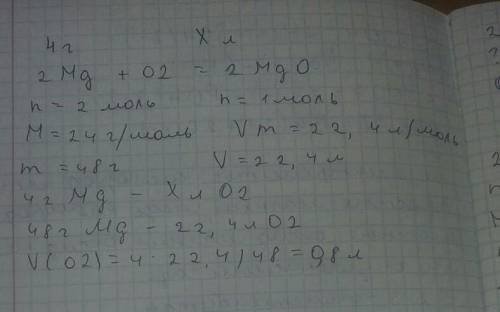 4 г X л
2 Mg + O2 = 2 MgO
n = 2 моль n = 1 моль
M = 24 г/моль Vm = 22, 4 л/моль
m = 48 г V = 22, 4 л
4 г Mg - X л O2
48 г Mg - 22, 4 л O2
V(O2) = 4 · 22, 4 / 48 = 0,8 л